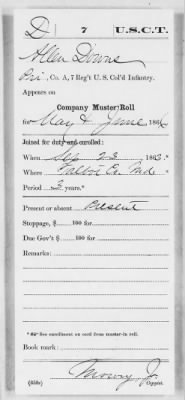 D 7 U.S.C.T.
Allen Downs
Pri, Co. A, 7 Reg't U. S. Col'd Infantry.
Appears on
Company Muster Roll
for May & June, 1864
Joined for duty and enrolled:
When Sep 23, 1863*
Where Talbot Co. Md.
Period 3 years.*
Present or absent Present
Stoppage, $ 100 for
Due Gov't $ 100 for
Remarks:
* See enrollment on card from muster-in roll.
Book mark:
Mowry, J.
(358c) Copyist.